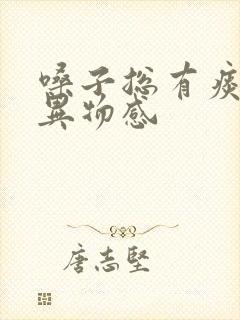 嗓子总有痰
异物感
唐志坚